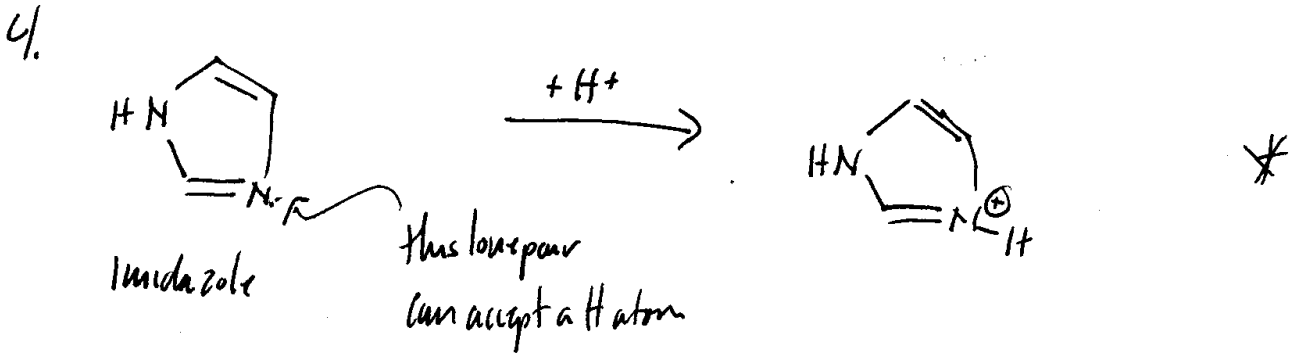 4.
HN
N:
Imidazole
this lone pair
can accept a H atom
+ H+
HN
N
+
H
*